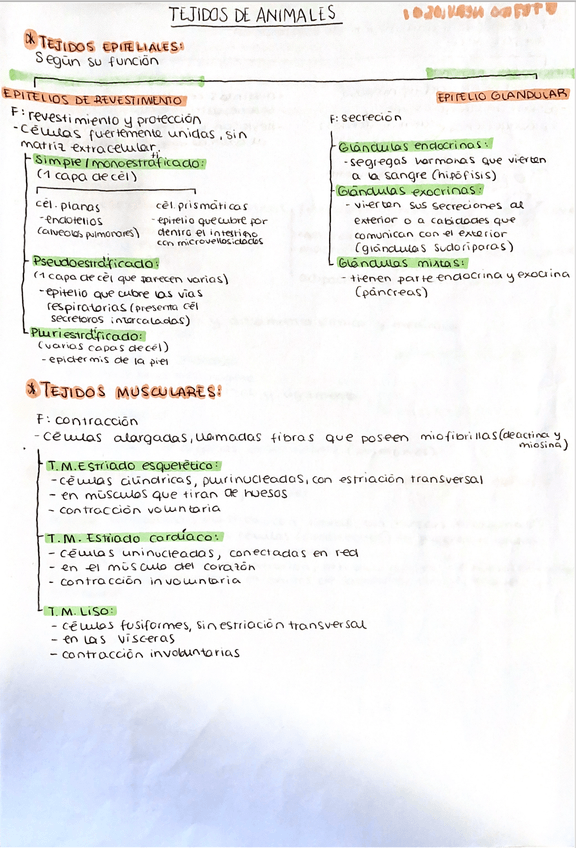 TEJIDOS DE ANIMALES
* TEJIDOS EPITELIALES:
Según su función
EPITELIOS DE REVESTIMIENTO
F: revestimiento y protección
- Células fuertemente unidas, sin
matriz extracelular.
Simple/monoestratificado:
(1 capa de cél)
cél. planas
- endotelios
(alveolos pulmonares)
cél. prismáticas
- epitelio que cubre por
dentro el intestino
con microvellosidades
Pseudoestratificado:
(1 capa de cél que parecen varias)
- epitelio que cubre las vías
respiratorias (presenta cél
secretoras intercaladas)
Pluriestratificado:
(varias capas de cél)
- epidermis de la piel
EPITELIO GLANDULAR
F: secreción
Glándulas endocrinas:
- segregas hormonas que vierten
a la sangre (hipófisis)
Glándulas exocrinas:
- vierten sus secreciones al
exterior o a cabidades que
comunican con el exterior
(glándulas sudoríparas)
Glándulas mixtas:
- tienen parte endocrina y exocrina
(páncreas)
* TEJIDOS MUSCULARES:
F: contracción
- Células alargadas, llamadas fibras que poseen miofibrillas (de actina y
miosina)
T.M. Estriado esquelético:
- células cilíndricas, plurinucleadas, con estriación transversal
- en músculos que tiran de huesos
- contracción voluntaria
T.M. Estriado cardíaco:
- células uninucleadas, conectadas en red
- en el músculo del corazón
- contracción involuntaria
T.M. Liso:
- células fusiformes, sin estriación transversal
- en las vísceras
- contracción involuntarias